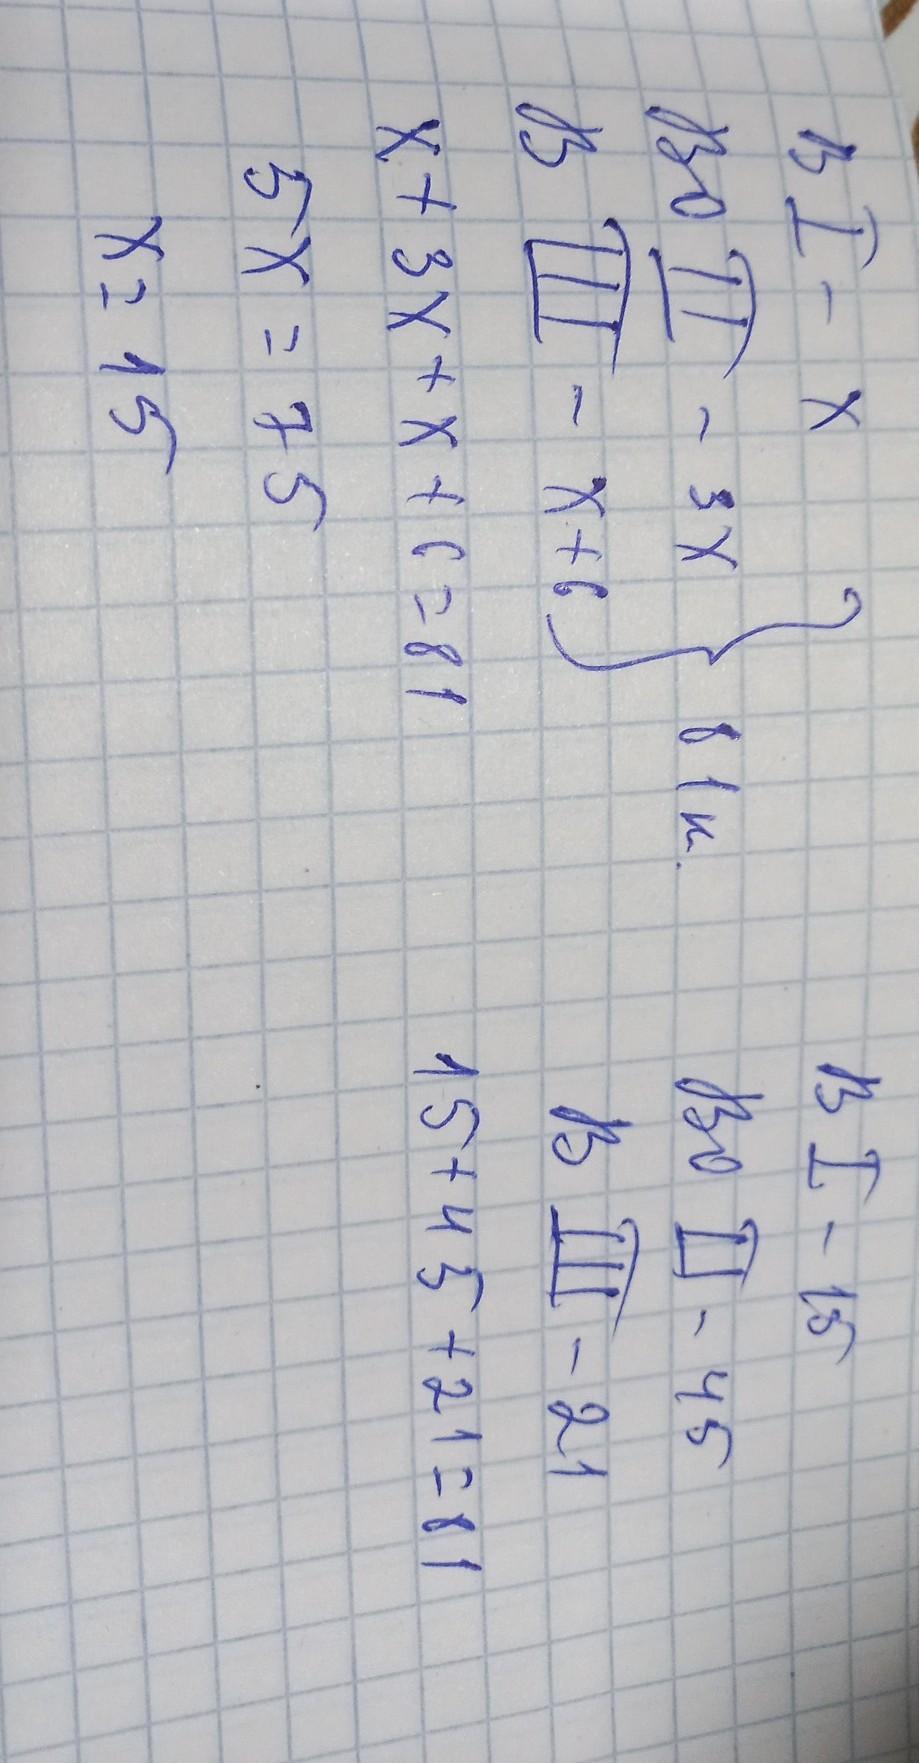 В I - x
Во II - 3x
В III - x+6
81к.
x+3x+x+6=81
5x=75
x=15
В I - 15
Во II - 45
В III - 21
15+45+21=81